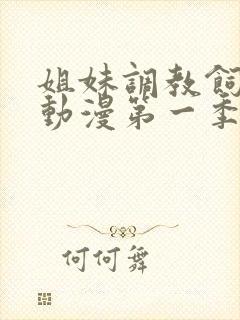 姐妹調教飼
動漫第一季
何何舞